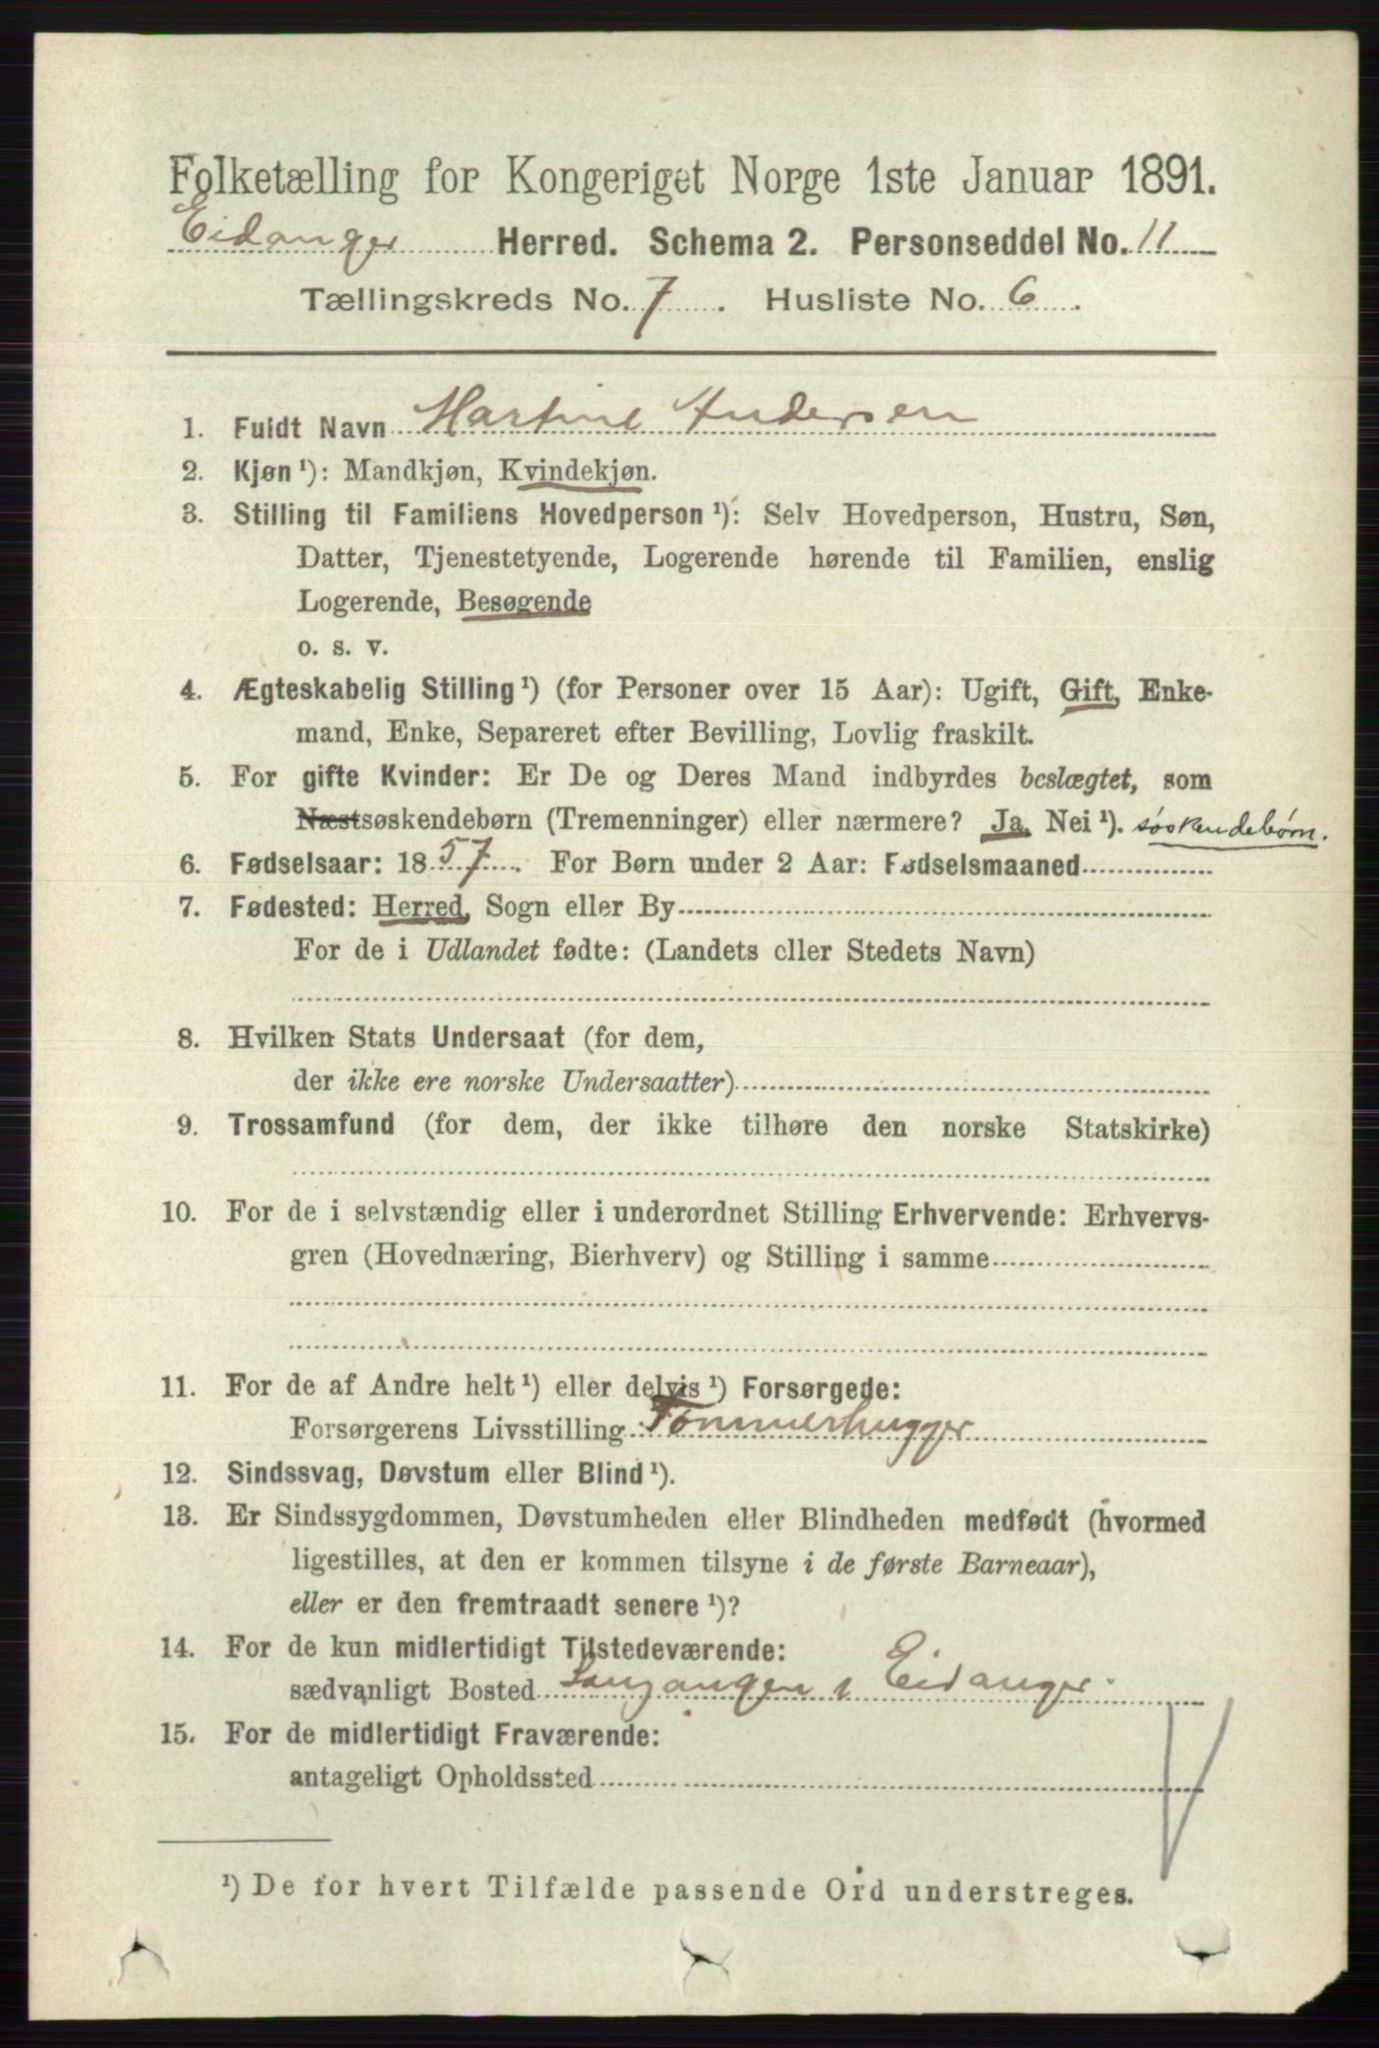 Folketælling for Kongeriget Norge 1ste Januar 1891.
Eidanger Herred. Schema 2. Personseddel No. 11
Tællingskreds No. 7. Husliste No. 6.
1. Fuldt Navn Martine Andersen
2. Kjøn ¹): Mandkjøn, Kvindekjøn.
3. Stilling til Familiens Hovedperson ¹): Selv Hovedperson, Hustru, Søn,
Datter, Tjenestetyende, Logerende hørende til Familien, enslig
Logerende, Besøgende
o. s. v.
4. Ægteskabelig Stilling ¹) (for Personer over 15 Aar): Ugift, Gift, Enke-
mand, Enke, Separeret efter Bevilling, Lovlig fraskilt.
5. For gifte Kvinder: Er De og Deres Mand indbyrdes beslægtet, som
Næstsøskendebørn (Tremenninger) eller nærmere? Ja, Nei ¹). søskendebørn.
6. Fødselsaar: 1857. For Børn under 2 Aar: Fødselsmaaned
7. Fødested: Herred, Sogn eller By
For de i Udlandet fødte: (Landets eller Stedets Navn)
8. Hvilken Stats Undersaat (for dem,
der ikke ere norske Undersaatter)
9. Trossamfund (for dem, der ikke tilhøre den norske Statskirke)
10. For de i selvstændig eller i underordnet Stilling Erhvervende: Erhvervs-
gren (Hovednæring, Bierhverv) og Stilling i samme
11. For de af Andre helt ¹) eller delvis ¹) Forsørgede:
Forsørgerens Livsstilling: Tømmerhugger
12. Sindssvag, Døvstum eller Blind ¹).
13. Er Sindssygdommen, Døvstumheden eller Blindheden medfødt (hvormed
ligestilles, at den er kommen tilsyne i de første Barneaar),
eller er den fremtraadt senere ¹)?
14. For de kun midlertidigt Tilstedeværende:
sædvanligt Bosted Langangen i Eidanger
15. For de midlertidigt Fraværende:
antageligt Opholdssted
¹) De for hvert Tilfælde passende Ord understreges.